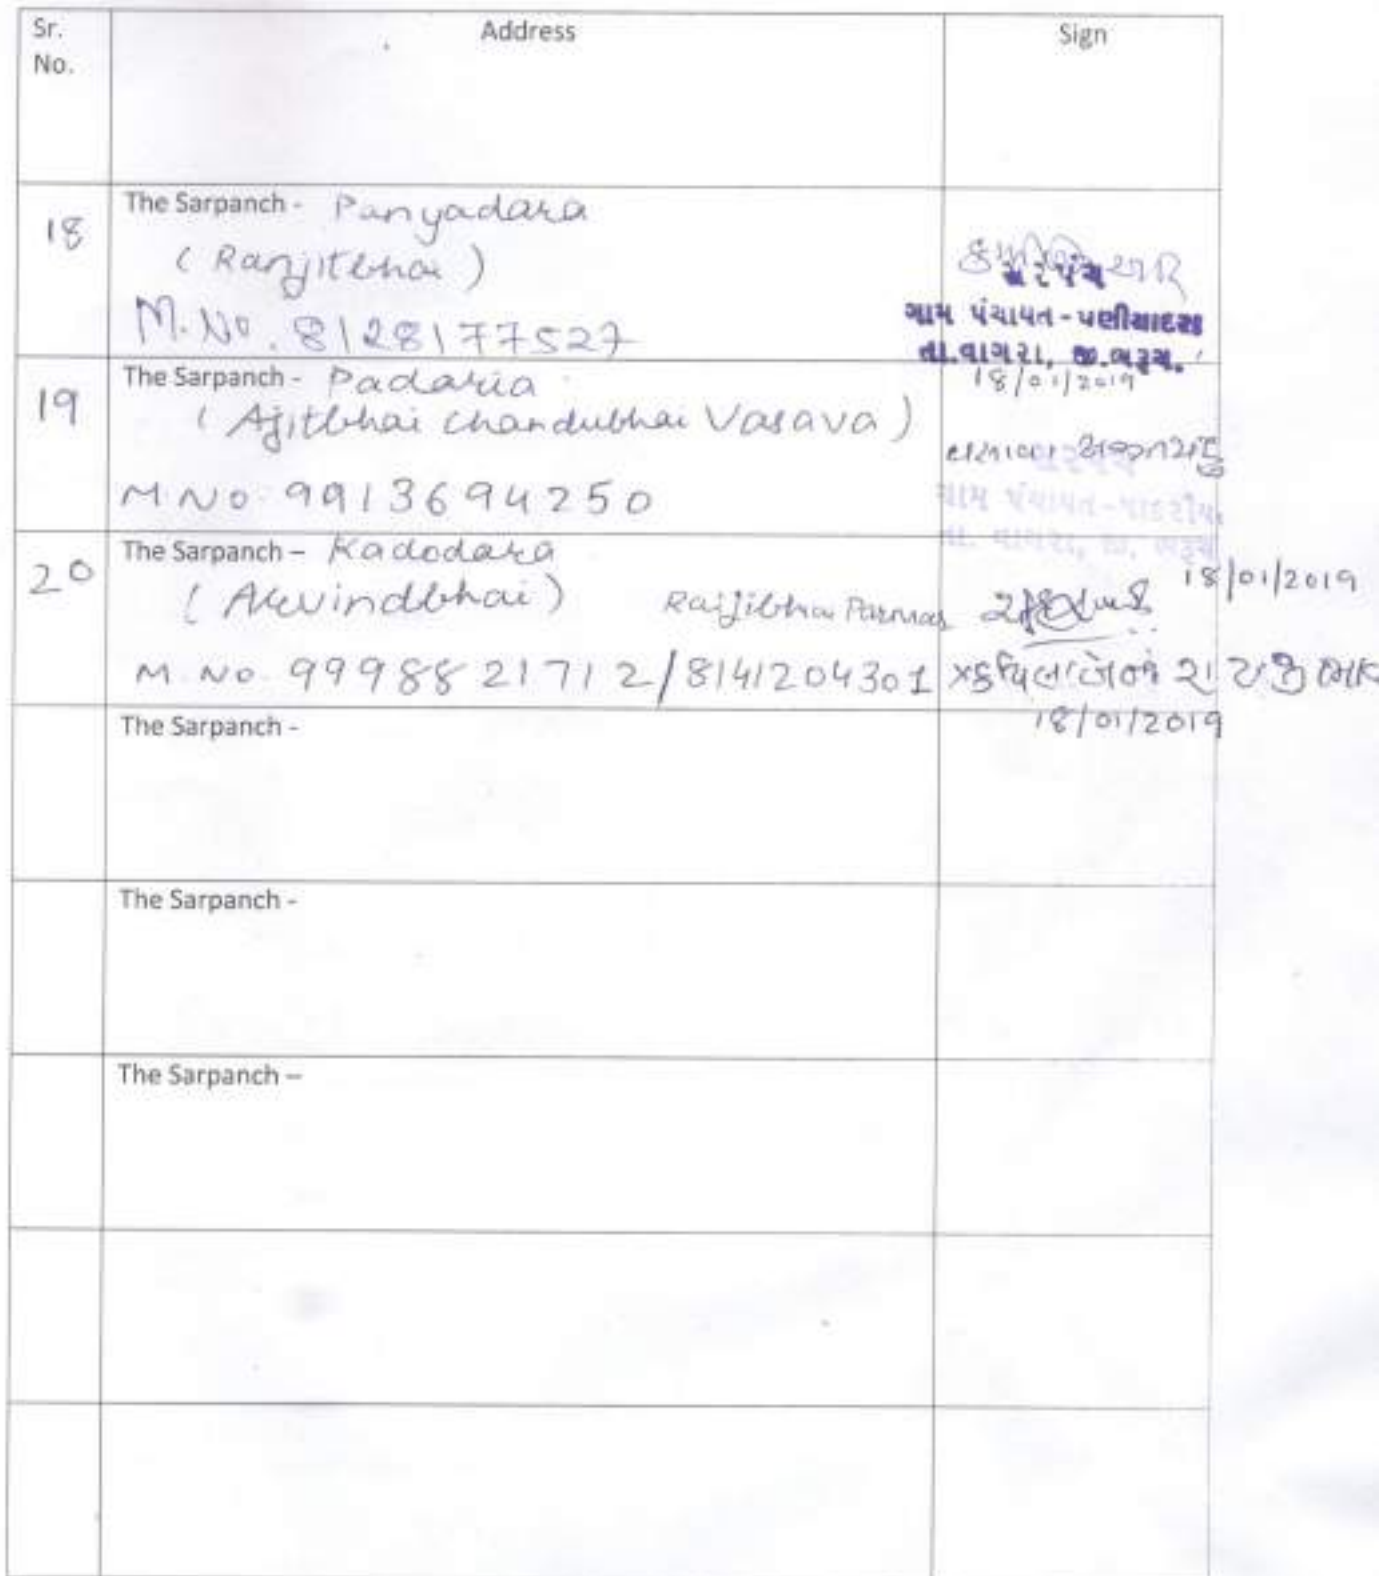 Sr. No. Address Sign
18 The Sarpanch - Panyadara
(Ranjitbhai)
M.No. 8128177527
સરપંચ
ગામ પંચાયત - પણીયાદરા
તા.વાગરા, જી.ભરૂચ.
18/01/2019
19 The Sarpanch - Padaria
(Ajitbhai Chandubhai Vasava)
M NO 9913694250
વસાવા
ગામ પંચાયત-પાદરીયા
તા. વાગરા, જી. ભરૂચ
18/01/2019
20 The Sarpanch – Kadodara
(Arvindbhai) Raijibhai Parmar
M. No. 9998821712/8141204301
18/01/2019
The Sarpanch -
The Sarpanch -
The Sarpanch –